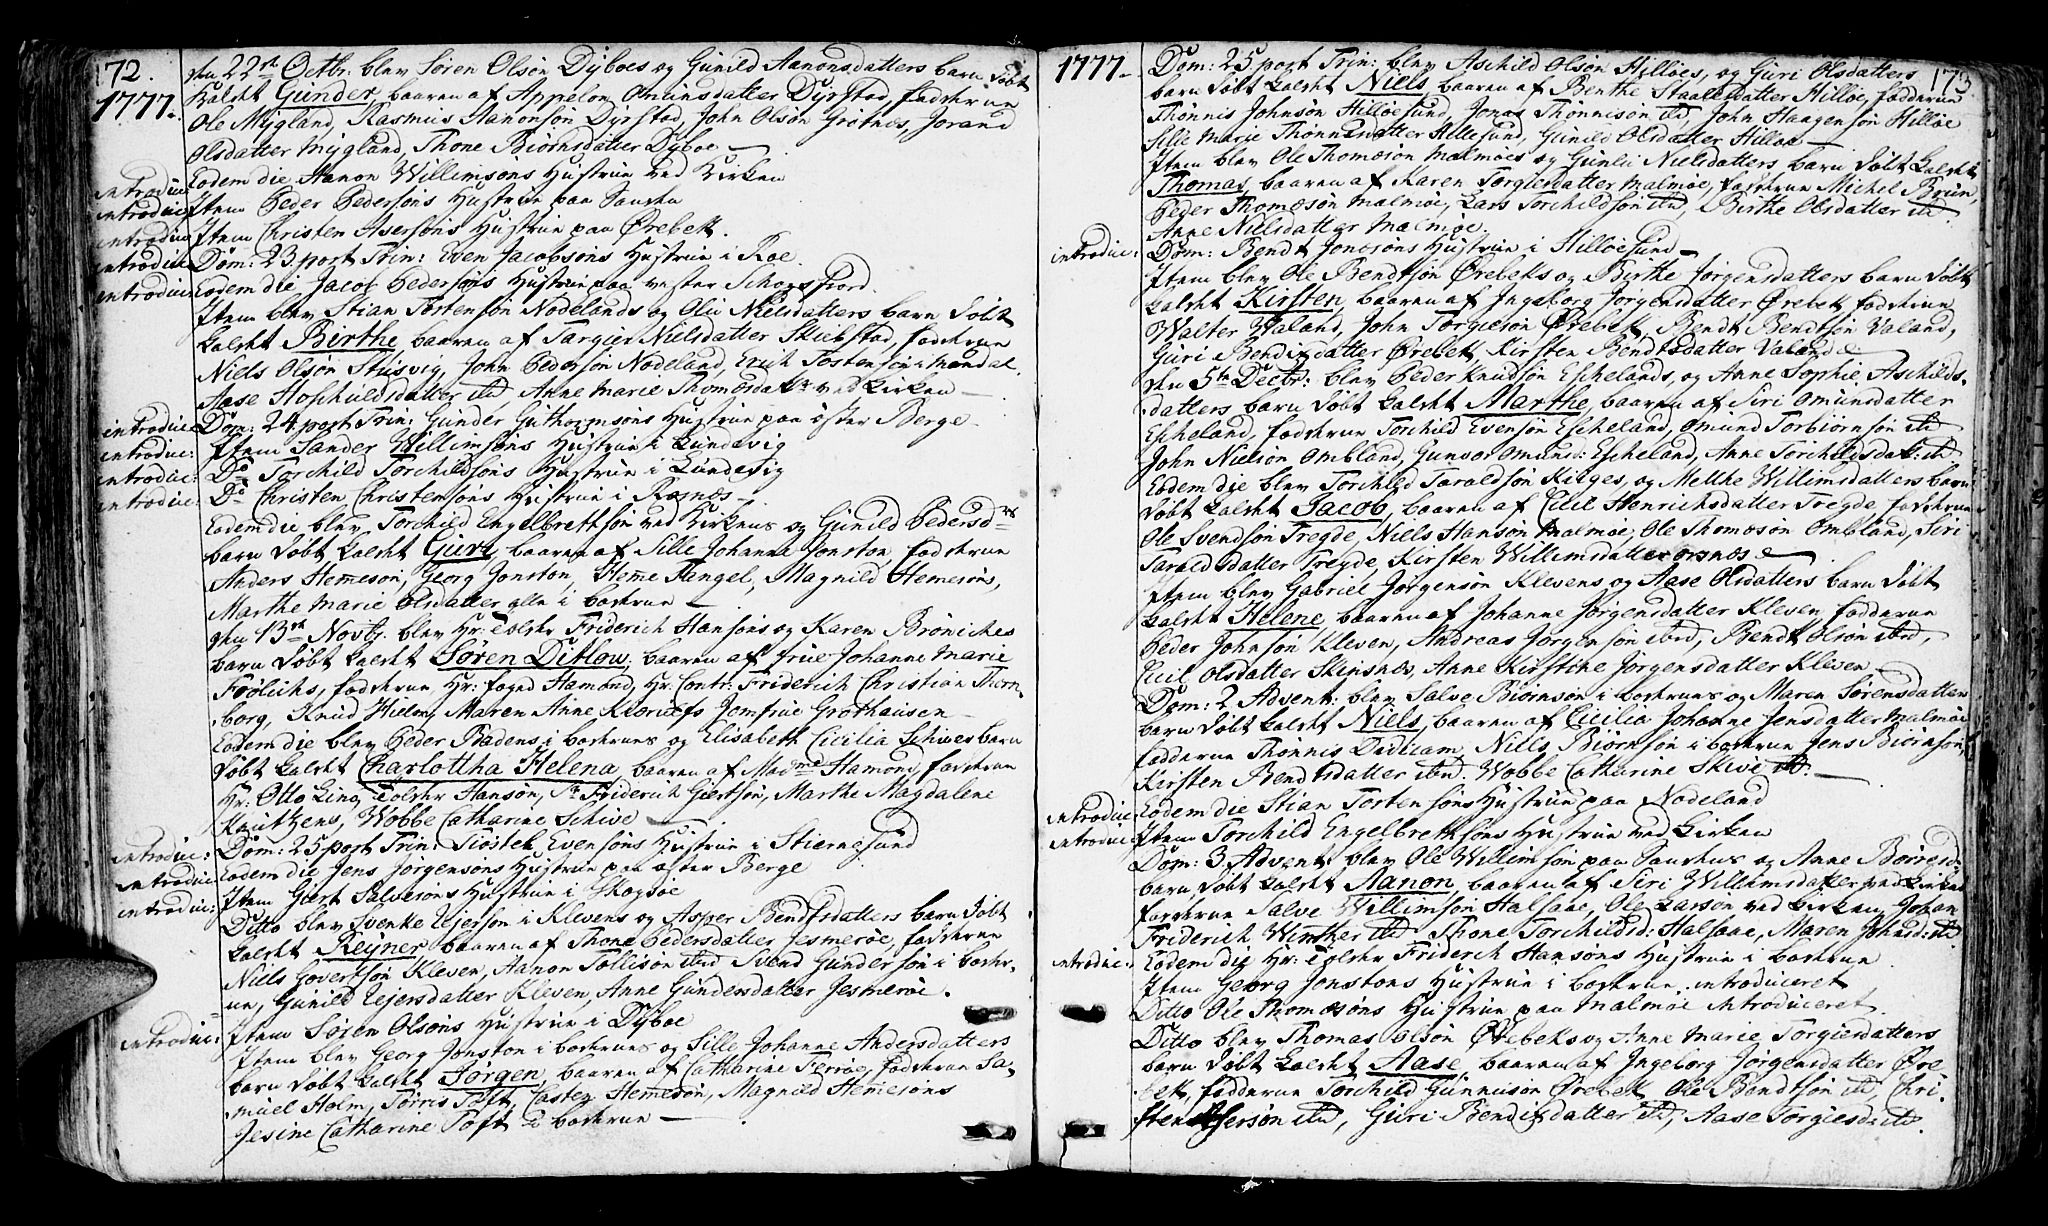 172.
1777.
den 22de Octbr: blev Søren Olsøn Dyboes og Gunild Aanonsdatters barn døbt
kaldet Gunder, baaren af Appelon Omunsdatter Dyrstad, fadderne
Ole Mygland, Rasmus Aanonsøn Dyrstad, John Olsøn Grotnes, Jorand
Olsdatter Mygland, Thone Biørnsdatter Dyboe
introduc: Eodem die Aanon Willimsøns Hustrue ved Kirken
introduc: Item Peder Pedersøns Hustrue paa
introduc: Item Christen Asersøns Hustrue paa Ørebek.
introduc: Dom: 23 post Trin: Even Jacobsøns Hustrue i Roe.
introduc: Eodem die Jacob Pedersøns Hustrue paa vester Schogsfiord.
Item blev Stian Tortensøn Nodelands og Oliv Nielsdatters barn døbt
kaldet Birthe, baaren af Targier Nielsdatter Skiebstad, fadderne
Niels Olsøn Stusvig, John Pedersøn Nodeland, Erich Tostensøn i Mandal,
Aase Hoschuldsdatter ibd Anne Marie Thomæsdatr ved Kirken
introduc: Dom: 24 post Trin: Gunder Guthormsøns Hustrue paa øster Berge
introduc: Item Sander Willimsøns Hustrue i Lundevig
introduc: Do Torchild Torchildsøns Hustrue i Lundevig
introduc: Do Christen Christensøns Hustrue i Risnes
Eodem die blev Torchild Engelbrettsøn ved Kirkens og Gunild Pedersdrs
barn døbt kaldet Guri, baaren af Sille Johanna Jonston, fadderne
Anders Hemesøn, Georg Jonston, Heme Tangel, Magnild Hemesøns,
Marthe Marie Olsdatter alle i boskrue
den 13de Novbr. blev Hr: Tolder Friderich Hansøns og Karen Brøniches
barn døbt kaldet Søren Ditlow, baaren af frue Johanne Marie
Frølichs, fadderne, Hr: foged Hamond, Hr: Contr: Friderich Christian Thorn-
borg, Knud Hielm, Maren Anne Jomfrue Grothausen
Eodem die blev Peder Badens i boskrues og Elisabeth Cicilia Schives barn
døbt kaldet Charlottha Helena, baaren af Madme Hamond, fadderne
Hr: Otto Ling, Tolder Hansøn, Sr Friderich Giertsøn, Marthe Magdalene
Kruthens, Wobbe Catharine Schive
introduc: Dom: 25 post Trin: Tiøstel Evensøns Hustrue i Stiernesund
introduc: Eodem die Jens Jørgensøns Hustrue paa øster Berge
introduc: Item Giert Salvesøns Hustrue i Skogsøe
Ditto blev Svenke Ejersøn i Klevens og Asper Bendtsdatters barn døbt
kaldet Reyner, baaren af Thone Pedersdatter Jesmerøe, fadderne
Niels Govertsøn Kleven, Aanon Tollisøn ibd Svend Gundersøn i boskr-
ue, Gunild Ejersdatter Kleven, Anne Gundersdatter Jesmerøe.
introduc: Item Søren Olsøns Hustrue i Dyboe
Item blev Georg Jonston i boskrues og Sille Johanne Andersdatters
barn døbt kaldet Jørgen, baaren af Catharine Ferrøe, fadderne Sa-
muel Holm, Tørris Toft, Casten Hemesøn, Magnild Hemesøns
Jesine Catharine Toft i boskrue
173
1777.
Dom: 25 post Trin: blev Aschild Olsøn Hilløes, og Guri Olsdatters
barn døbt kaldet Niels, baaren af Benthe Staalesdatter Hilløe, fadderne
Thønnis Johnsøn Hilløesund, Jonas Thønnisøn ibd, John Haagensøn Hilløe
Silie Marie Thønnesdatter Hillesund, Gunild Olsdatter Hilløe
Item blev Ole Thomæsøn Malmøes og Gunli Nielsdatters barn døbt kaldet
Thomas, baaren af Karen Torgiersdatter Malmøe, fadderne Michel Bruun,
Peder Thomæsøn Malmøe, Lars Torchildsøn ibd, Birthe Olsdatter ibd
Anne Nielsdatter Malmøe
introduc: Dom: Bendt Jonesøns Hustrue i Hilløesund
Item blev Ole Bendtsøn Ørebeks og Birthe Jørgensdatters barn døbt
kaldet Kirsten, baaren af Ingeborg Jørgensdatter Ørebek, fadderne
Walter Valand, John Torgiesøn Ørebek, Bendt Bendtsøn Valand,
Guri Bendixdatter Ørebek, Kirsten Bendtsdatter Valand
den 5te Decbr: blev Peder Knudsøn Eschelands, og Anne Sophie Aschilds-
datters barn døbt kaldet Marthe, baaren af Siri Omunsdatter
Escheland, fadderne Torchild Evensøn Escheland, Omund Torbiørnsøn ibd
John Nielsøn Ombland, Gunvor Omunsd: Escheland, Anne Torchildsdat: ibd
Eodem die blev Torchild Taraldsøn Kirges, og Mette Willimsdatters barn
døbt kaldet Jacob, baaren af Cicil Henrichsdatter Tregde, fadderne
Ole Svendsøn Tregde, Niels Hansøn Malmøe, Ole Thomæsøn Ombland, Siri
Taraldsdatter Tregde, Kirsten Willimsdatter
Item blev Gabriel Jørgensøn Klevens og Aase Olsdatters barn døbt
kaldet Helene, baaren af Johanne Jørgensdatter Kleven, fadderne
Peder Johnsøn Kleven, Andreas Jørgensøn ibid, Bendt Olsøn ibid,
Cicil Olsdatter Skinsnes, Anne Kirstine Jørgensdatter Kleven
Dom: 2 Advent: blev Salve Biørnsøn i boskrues og Maren Sørensdatters
barn døbt kaldet Niels, baaren af Cicilia Johanne Jensdatter Malmøe
fadderne Thønnis Dedicam, Niels Biørnsøn i boskrue, Jens Biørnsøn,
Kirsten Bendtsdatter ibid. Wobbe Catharine Skive ib.
introduc: Eodem die Stian Tortensøns Hustrue paa Nodeland
introduc: Item Torchild Engelbrettsøns Hustrue ved Kirken
Dom: 3 Advent: blev Ole Willimsøn paa og Anne Børresd:
barn døbt kaldet Aanon, baaren af Siri Willimsdatter ved Kirken
fadderne Salve Willimsøn Halsaae, Ole Larsøn ved Kirken, Johan
Friderich Winther ibd Thone Torchildsd: Halsaae, Maren Johnsd: ibd
introduc: Eodem die Hr: Tolder Friderich Hansøns Hustrue i boskrue
Item Georg Jonstons Hustrue i boskrue introduceret
Ditto Ole Thomæsøns Hustrue paa Malmøe introduceret
Ditto blev Thomas Olsøn Ørebeks og Anne Marie Torgiersdatters
barn døbt kaldet Aase, baaren af Ingeborg Jørgensdatter Øre-
bek, fadderne Torchild Gunnusøn Ørebek, Ole Bendtsøn ibd, Chri-
sten Asersøn ibd, Guri Bendixdatter ibd, Aase Torgiesd: ibd.